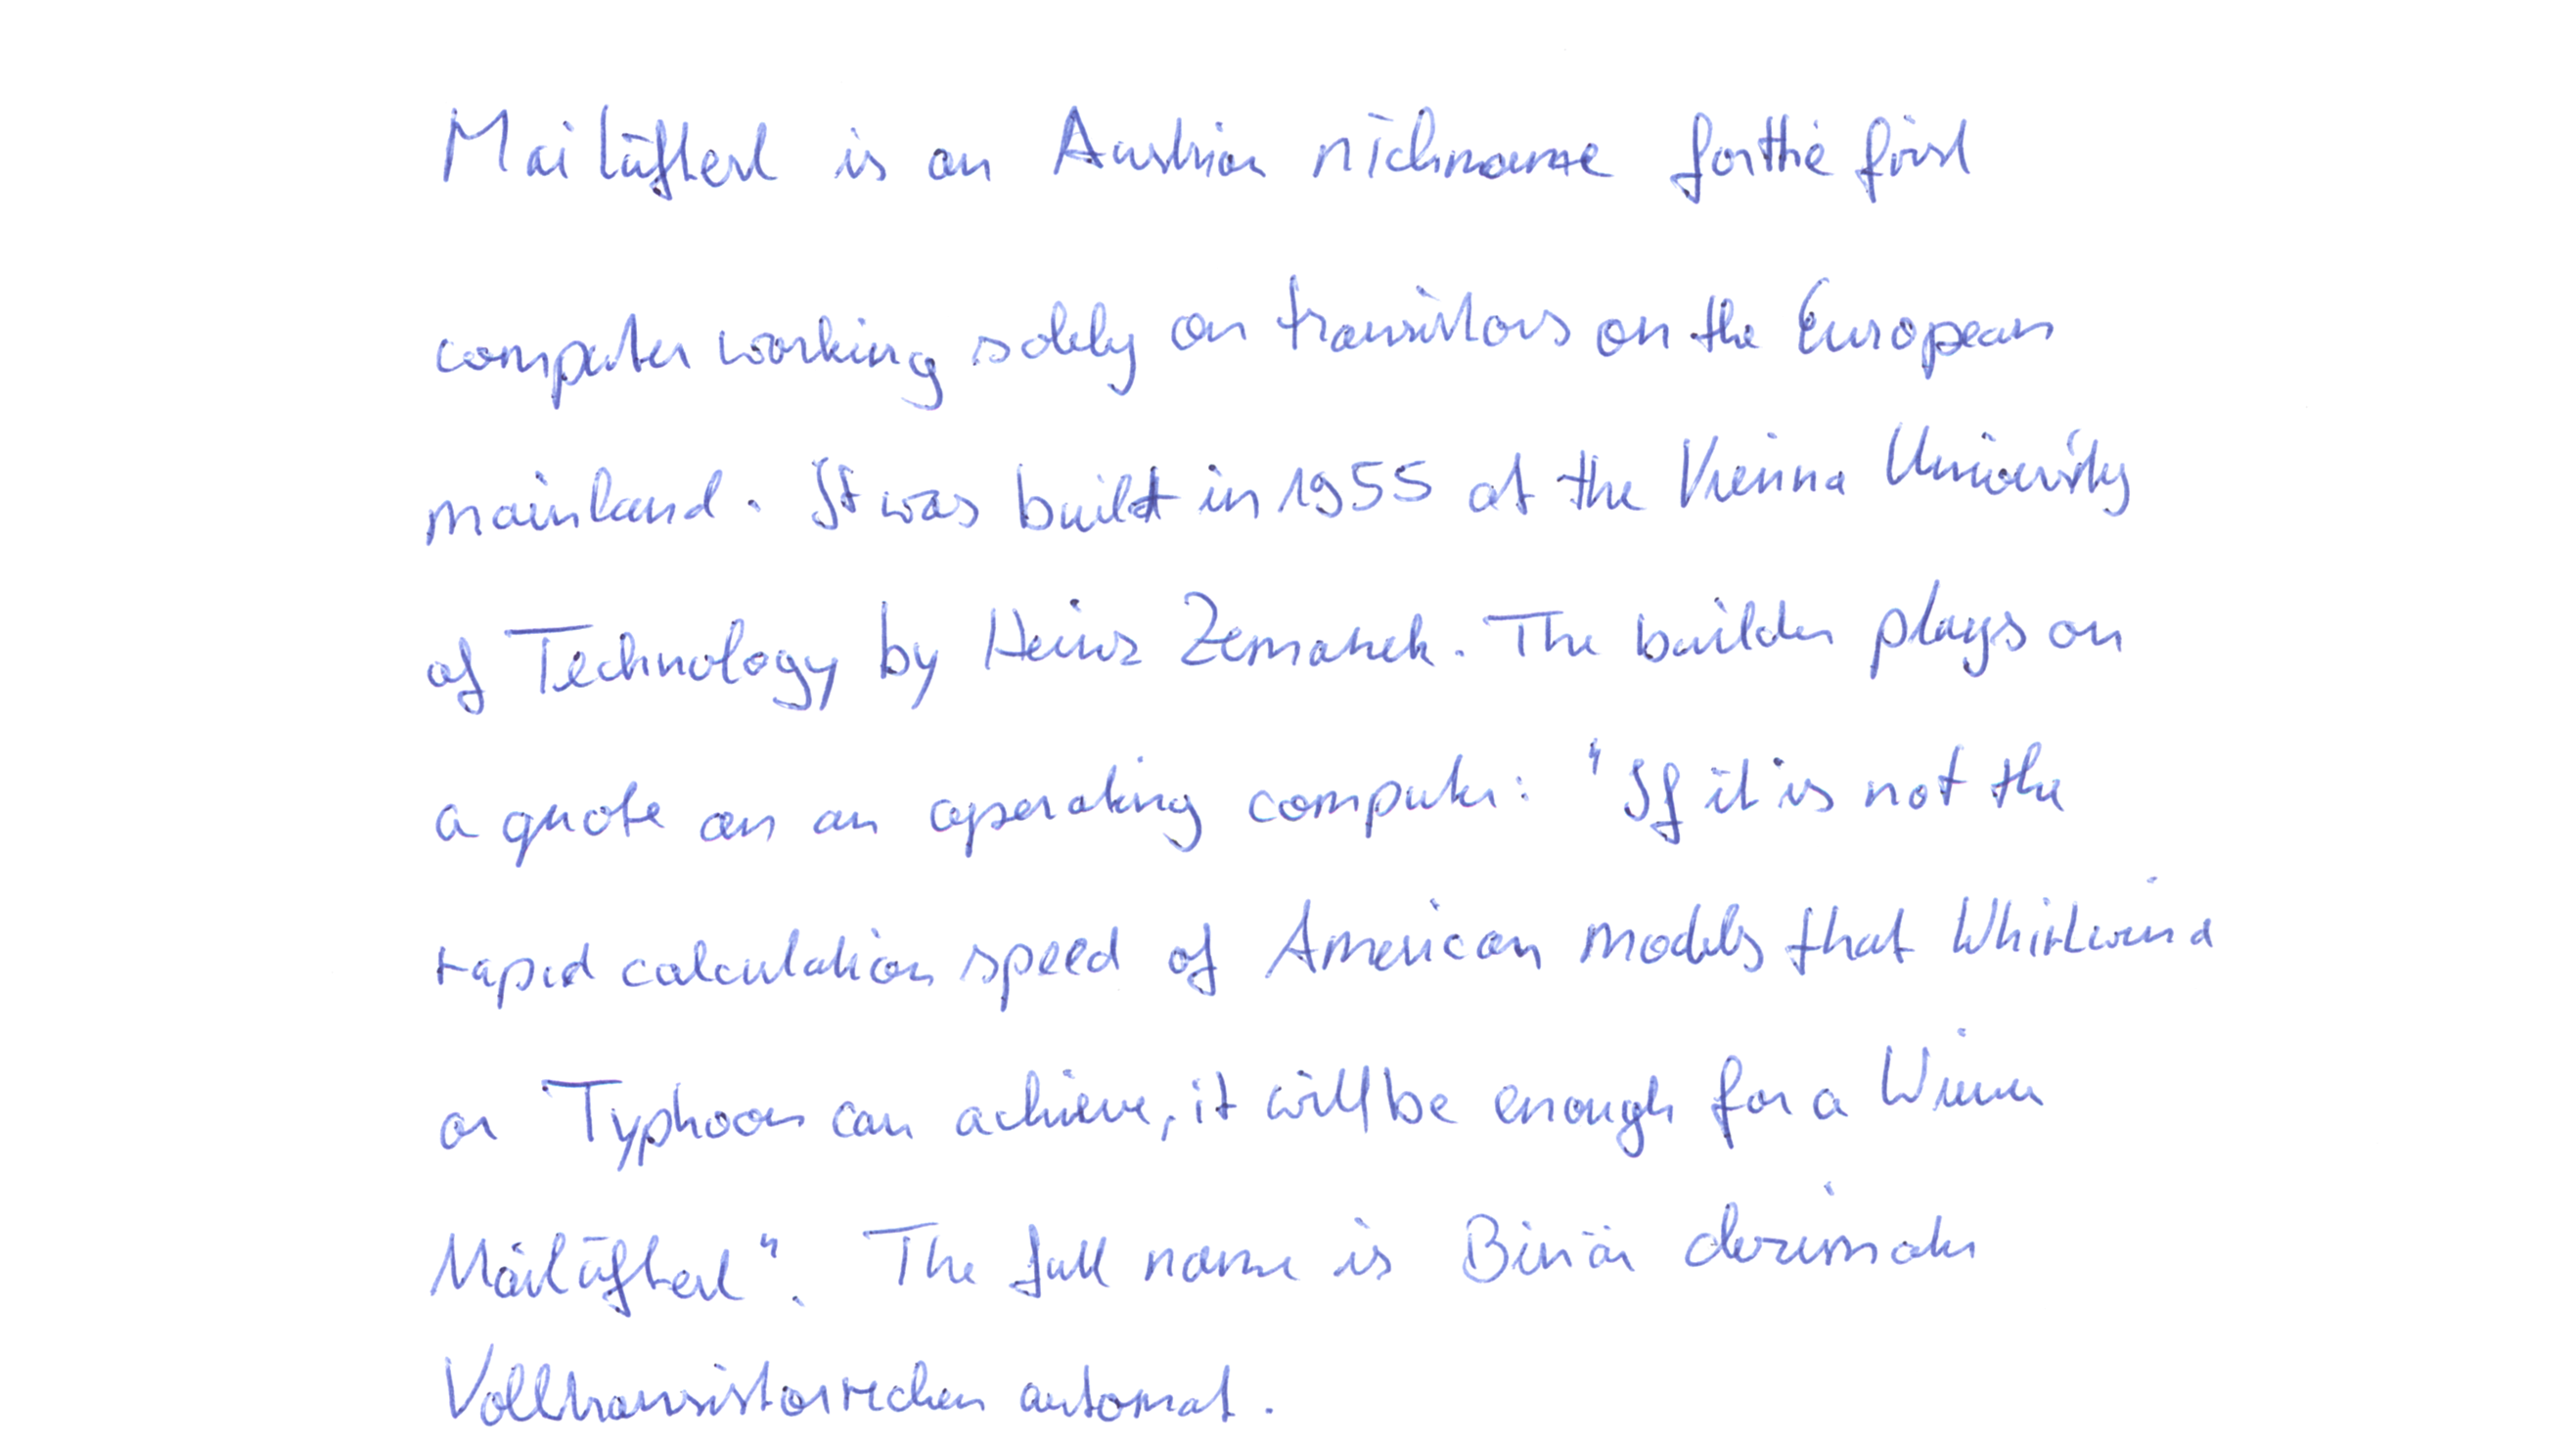 Mailüfterl is an Austrian nickname for the first
computer working solely on transistors on the European
mainland. It was built in 1955 at the Vienna University
of Technology by Heinz Zemanek. The builder plays on
a quote on an operating computer: "If it is not the
rapid calculation speed of American models that Whirlwind
or Typhoon can achieve, it will be enough for a Wiener
Mailüfterl". The full name is Binär dezimaler
Volltransistorrechen automat.